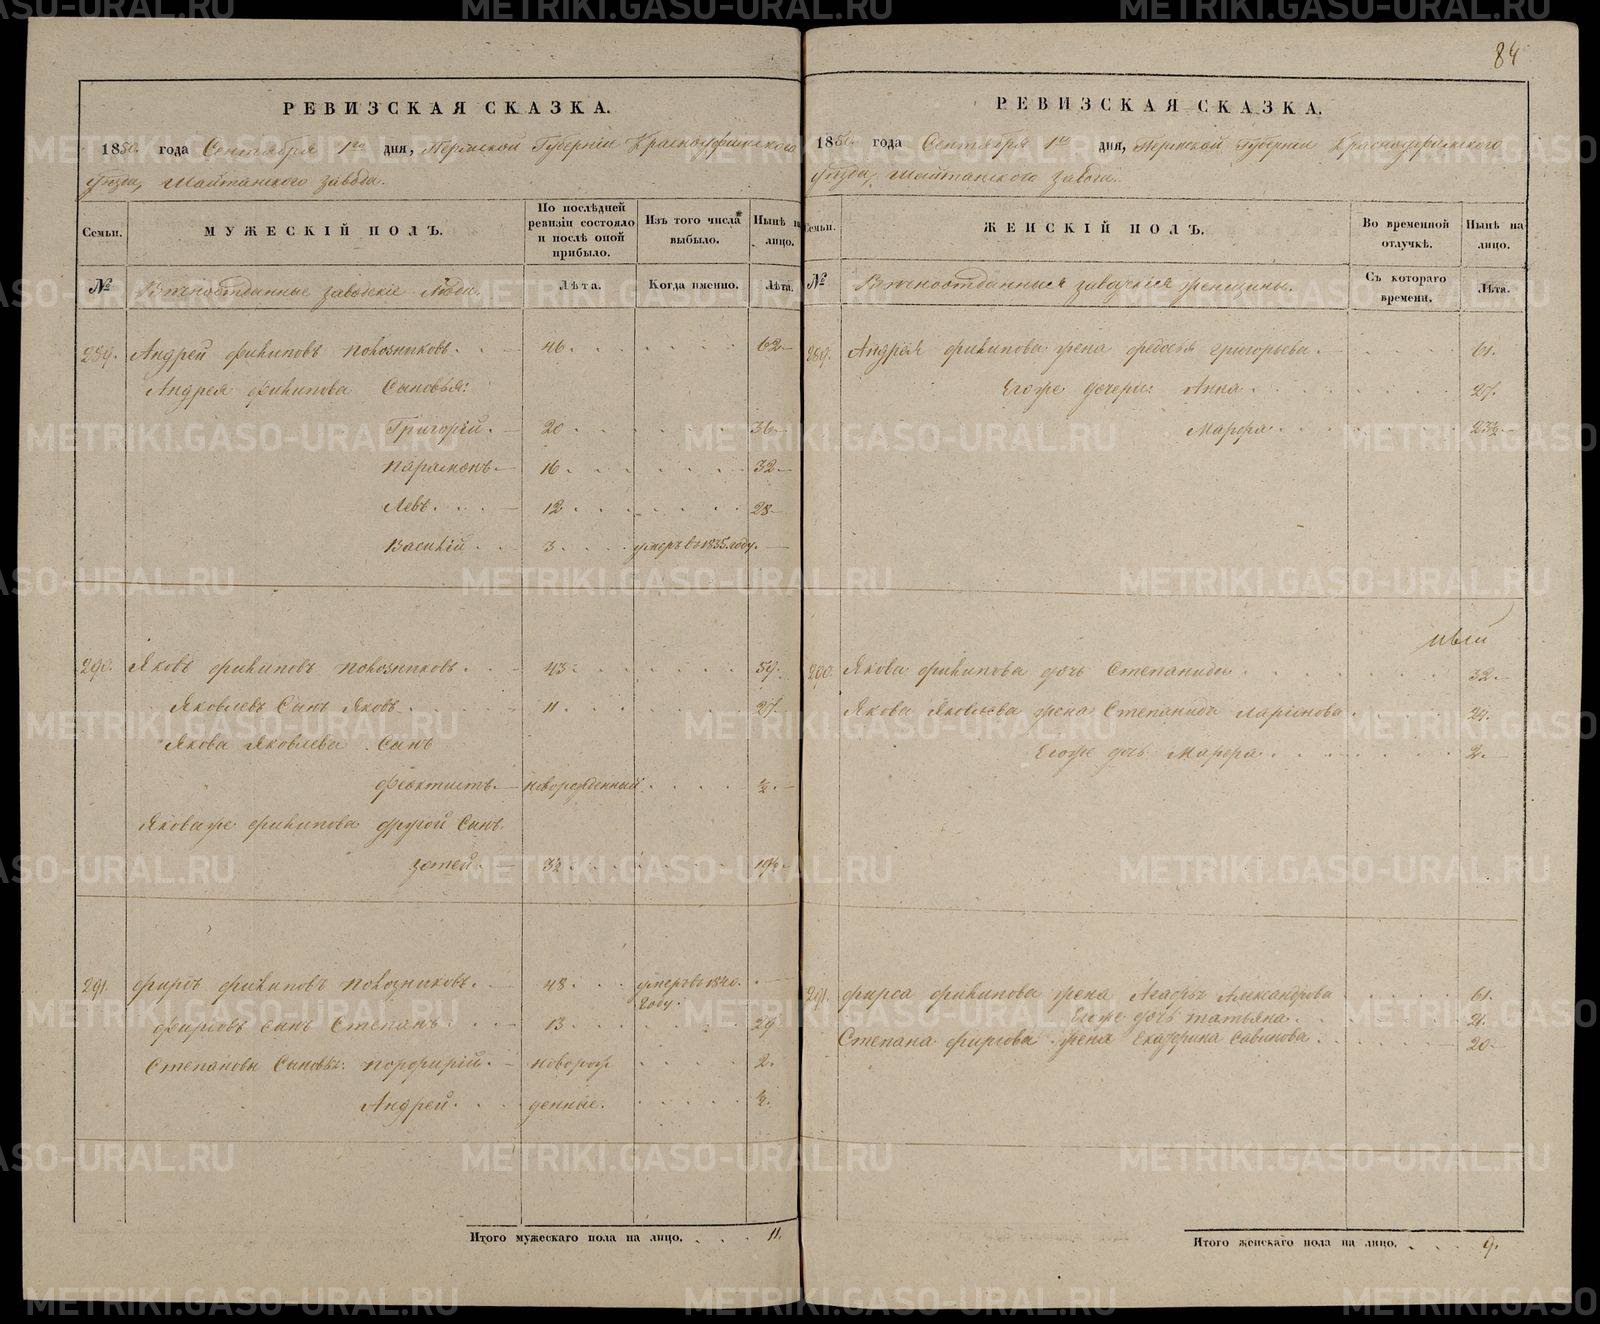 84
РЕВИЗСКАЯ СКАЗКА.
1850. года Сентября 1го дня, Пермской Губерніи Красноуфимскаго
уѣзда, Шайтанскаго завода.
Семьи.
МУЖЕСКІЙ ПОЛЪ.
По послѣдней ревизіи состояло и послѣ оной прибыло.
Изъ того числа выбыло.
Нынѣ на лицо.
№
Вѣчноотданные заводскіе люди.
Лѣта.
Когда именно.
Лѣта.
289. Андрей Филиповъ Полозниковъ. 46. 62
Андрея Филипова Сыновья:
Григорій. 20 36
Парамонъ 16. 32
Левъ. 12 28
Василій 3. умеръ въ 1835. году.
290. Яковъ Филиповъ Полозниковъ. 43. 59.
Яковлевъ Сынъ Яковъ 11. 27
Якова Яковлева Сынъ
Феоктистъ новорожденный ½.
Якова же Филипова другой Сынъ
Зотей. 3½ 19½.
291. Фирсъ Филиповъ Полозниковъ. 48. умеръ въ 1840. году.
Фирсовъ сынъ Степанъ. 13. 29
Степановы Сыновья: Порфирій. новорож 2.
Андрей. денные. ½.
Итого мужескаго пола на лицо. 11.
РЕВИЗСКАЯ СКАЗКА.
1850. года Сентября 1го дня, Пермской Губерніи Красноуфимскаго
уѣзда, Шайтанскаго завода.
Семьи.
ЖЕНСКІЙ ПОЛЪ.
Во временной отлучкѣ.
Нынѣ на лицо.
№
Вѣчноотданныя заводскія женщины.
Съ котораго времени.
Лѣта.
289. Андрея Филипова жена Федосья Григорьева. 61.
Егоже дочери: Анна 27.
Марфа 23½
290. Якова Филипова дочь Степанида 32.
Якова Яковлева жена Степанида Ларіонова 29.
Егоже дочь Марфа 2.
291. Фирса Филипова жена Агафья Александрова 61.
Егоже дочь Татьяна. 21.
Степана Фирсова жена Екатерина Савинова. 20
Итого женскаго пола на лицо. 9.
METRIKI.GASO-URAL.RU